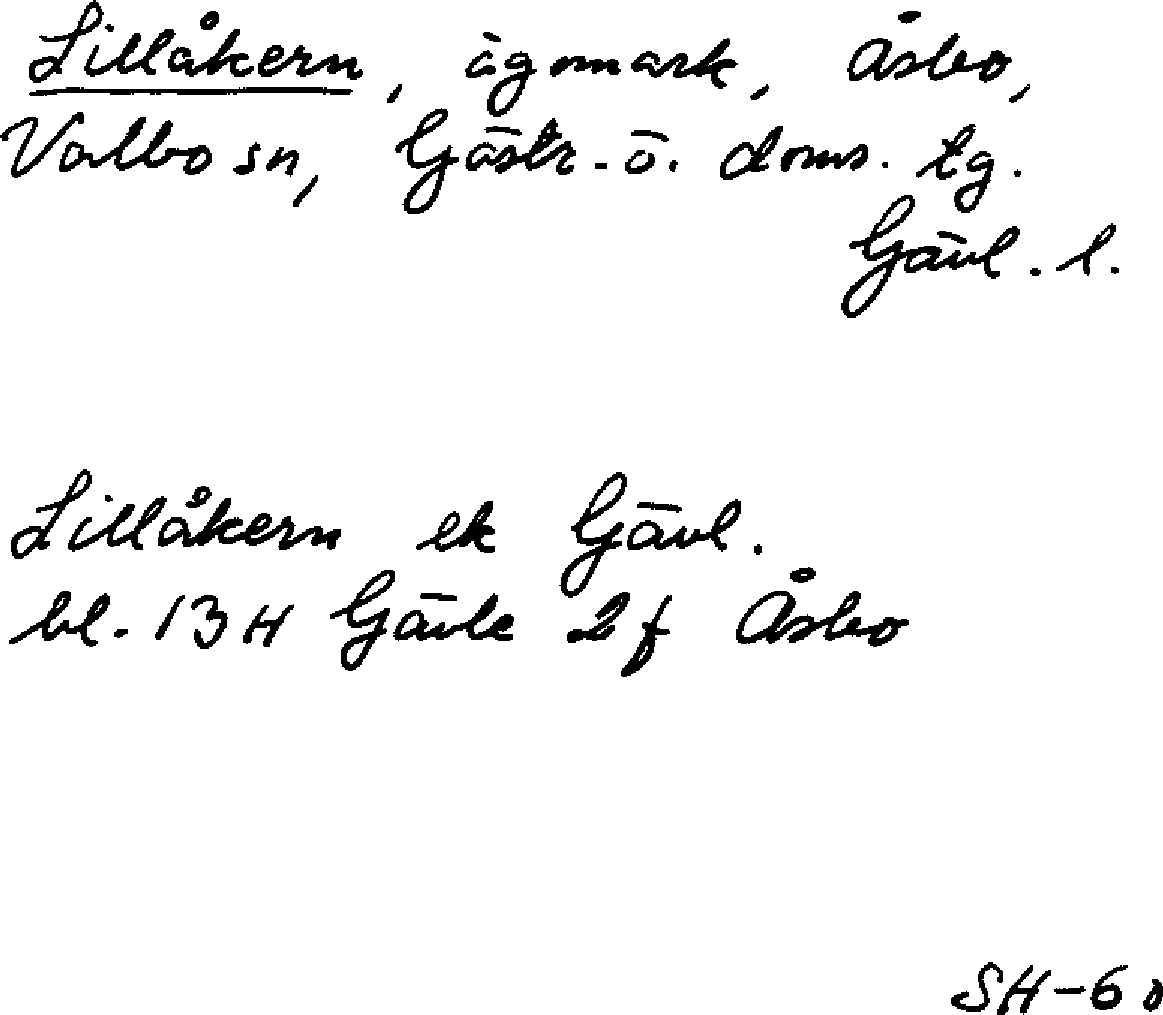 Lillåkern, ägomark, Åsbo,
Valbo sn, Gästr.-ö. doms. tg.
Gävl. l.
Lillåkern ek Gävl.
bl. 13H Gävle 2f Åsbo
SH-60